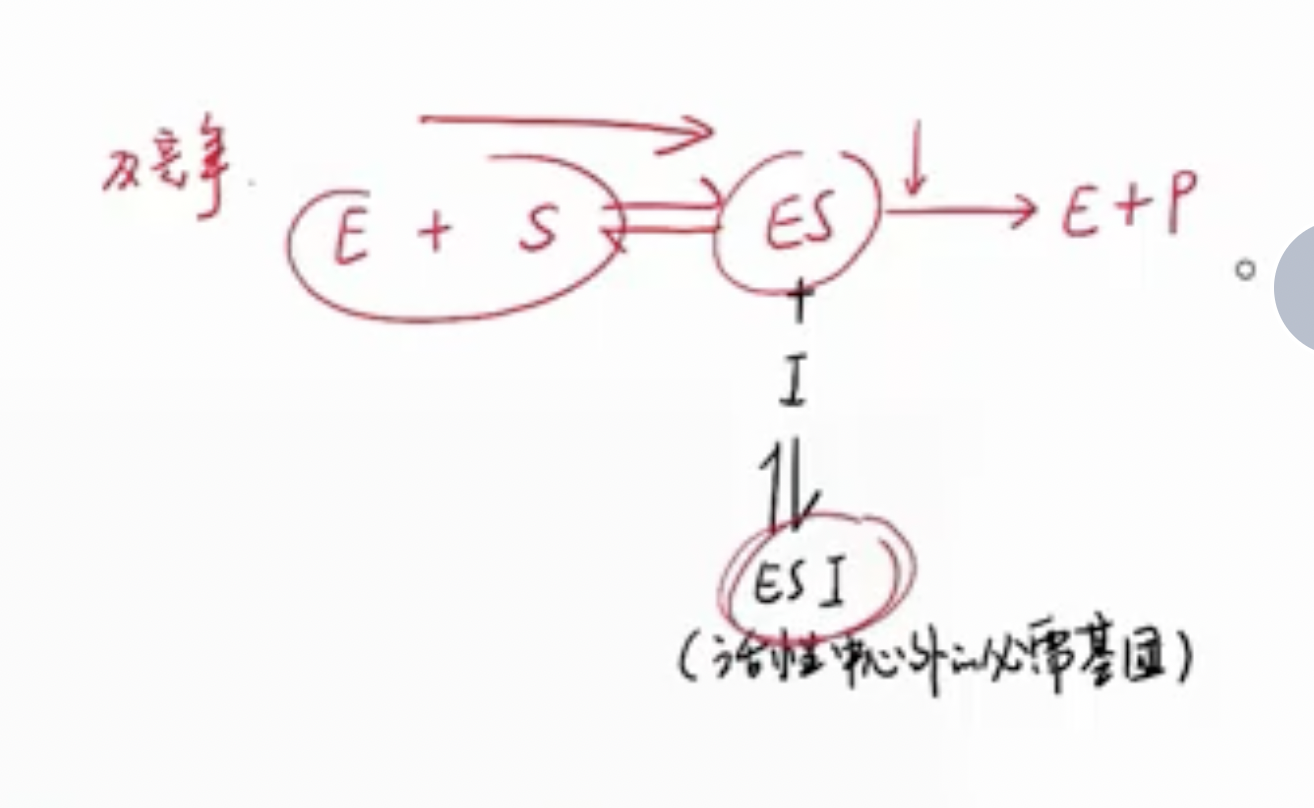 反竞争
E + S ⇌ ES → E+P
+
I
⇅
ESI
(活性中心外的必需基团)